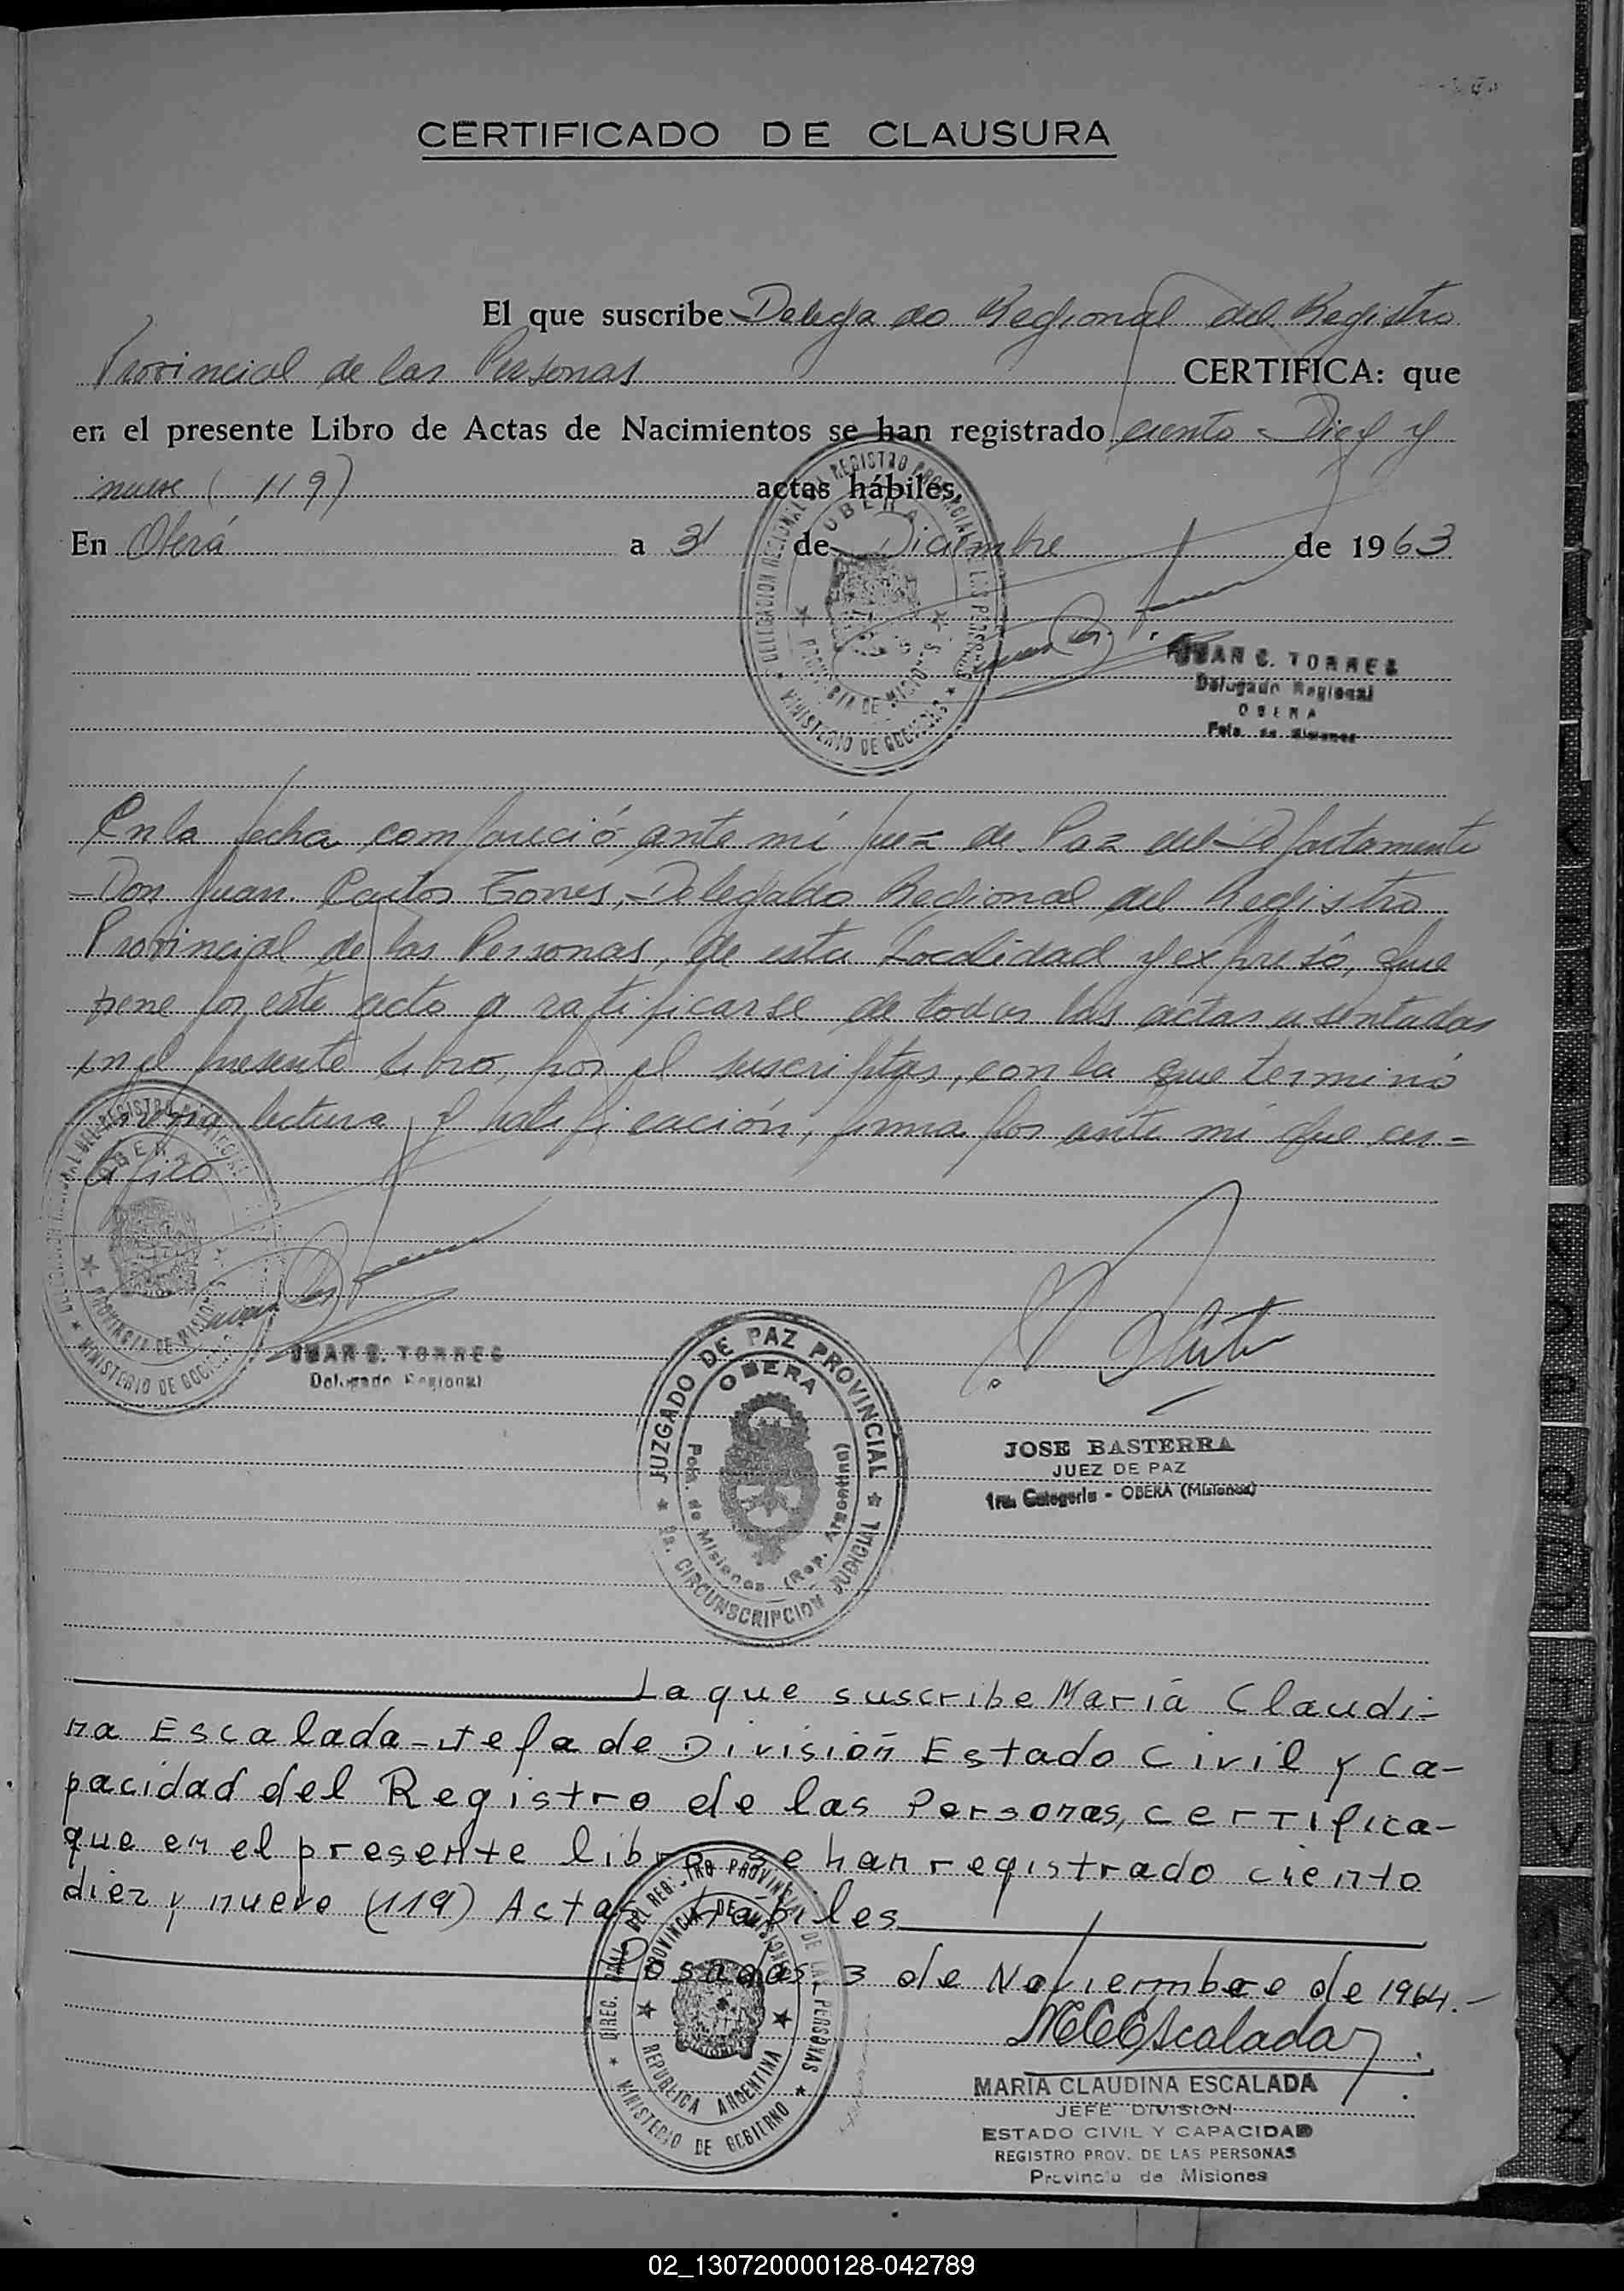 CERTIFICADO DE CLAUSURA
El que suscribe Delegado Regional del Registro
Provincial de las Personas CERTIFICA: que
en el presente Libro de Actas de Nacimientos se han registrado ciento Diez y
nueve (119) actas hábiles.
En Oberá a 31 de Diciembre de 1963
DELEGACION REGIONAL DEL REGISTRO PROVINCIAL DE LAS PERSONAS
OBERA
PROVINCIA DE MISIONES
MINISTERIO DE GOBIERNO
JUAN C. TORRES
Delegado Regional
OBERA
Pcia. de Misiones
En la fecha compareció ante mí Juez de Paz del Departamento
Don Juan Carlos Torres, Delegado Regional del Registro
Provincial de las Personas, de esta Localidad y expresó, que
viene por este acto a ratificarse de todas las actas asentadas
en el presente Libro, por el suscriptas, con la que terminó
previa lectura y ratificación, firma por ante mí que cer-
tifico
DELEGACION REGIONAL DEL REGISTRO PROVINCIAL
OBERA
PROVINCIA DE MISIONES
MINISTERIO DE GOBIERNO
JUAN C. TORRES
Delegado Regional
JUZGADO DE PAZ PROVINCIAL
OBERA
Pcia. de Misiones (Rep. Argentina)
CIRCUNSCRIPCION JUDICIAL
JOSE BASTERRA
JUEZ DE PAZ
1ra. Categoria - OBERA (Misiones)
La que suscribe María Claudi-
na Escalada-Jefa de División Estado Civil y Ca-
pacidad del Registro de las Personas, certifica-
que en el presente libro se han registrado ciento
diez y nueve (119) Actas hábiles
Posadas, 3 de Noviembre de 1964.-
DIREC. GRAL. DEL REGISTRO PROVINCIAL DE LAS PERSONAS
PROVINCIA DE MISIONES
REPUBLICA ARGENTINA
MINISTERIO DE GOBIERNO
MCEscalada
MARIA CLAUDINA ESCALADA
JEFE DIVISION
ESTADO CIVIL Y CAPACIDAD
REGISTRO PROV. DE LAS PERSONAS
Provincia de Misiones
02_130720000128-042789